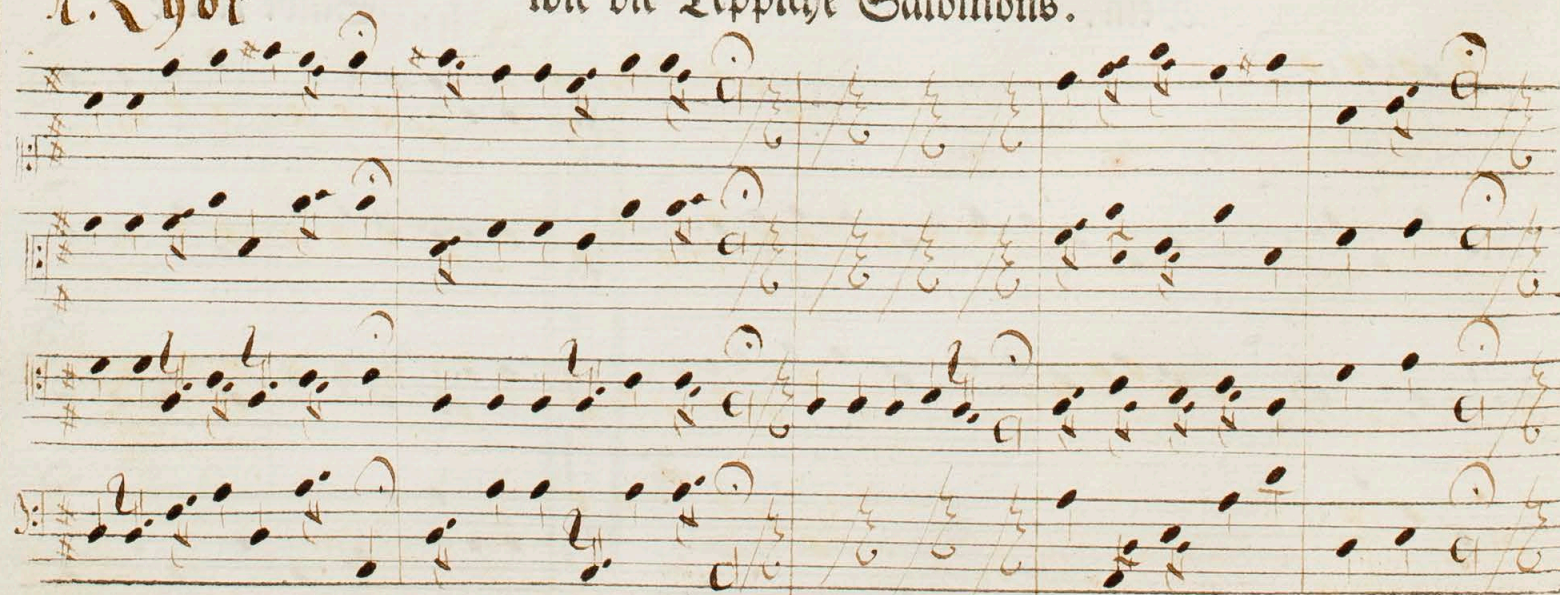 1. Chor
wie die Teppiche Salomons.